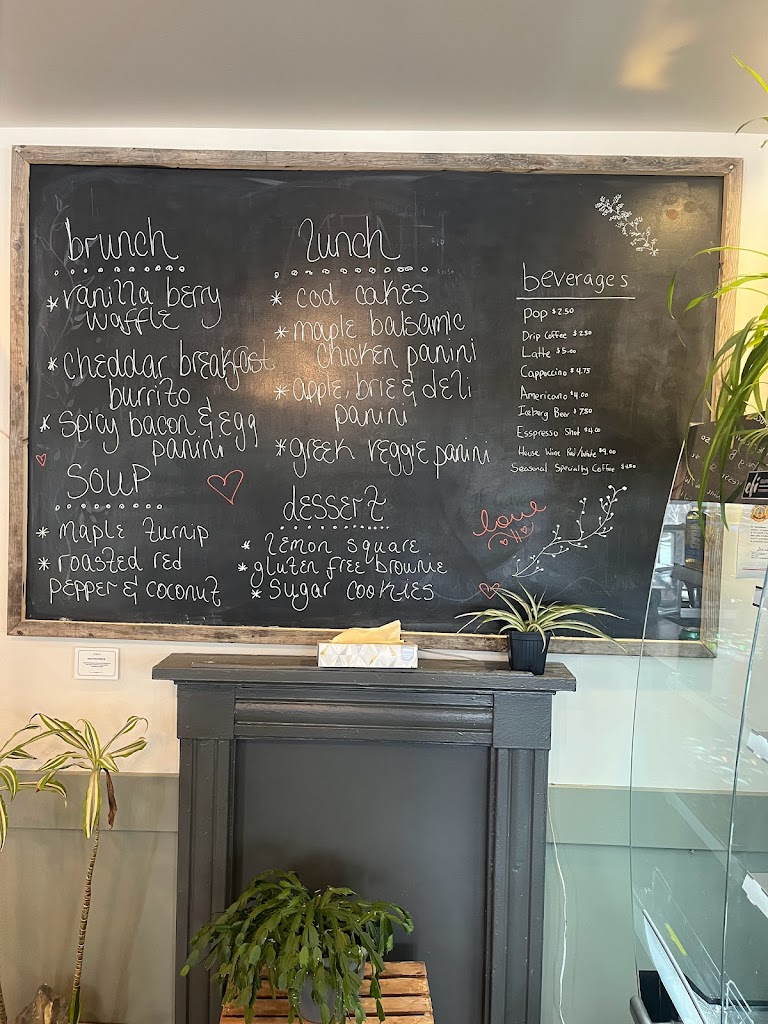 brunch
* vanilla berry
waffle
* cheddar breakfast
burrito
* spicy bacon & egg
panini
soup
* maple turnip
* roasted red
pepper & coconut
lunch
* cod cakes
* maple balsamic
chicken panini
* apple, brie & deli
panini
* greek veggie panini
dessert
* lemon square
* gluten free brownie
* sugar cookies
beverages
Pop $2.50
Drip Coffee $2.50
Latte $5.00
Cappoccino $4.75
Americano $4.00
Iceberg Beer $7.50
Esspresso Shot $4.00
House Wine Red/White $9.00
Seasonal Specialty Coffee $6.50
love